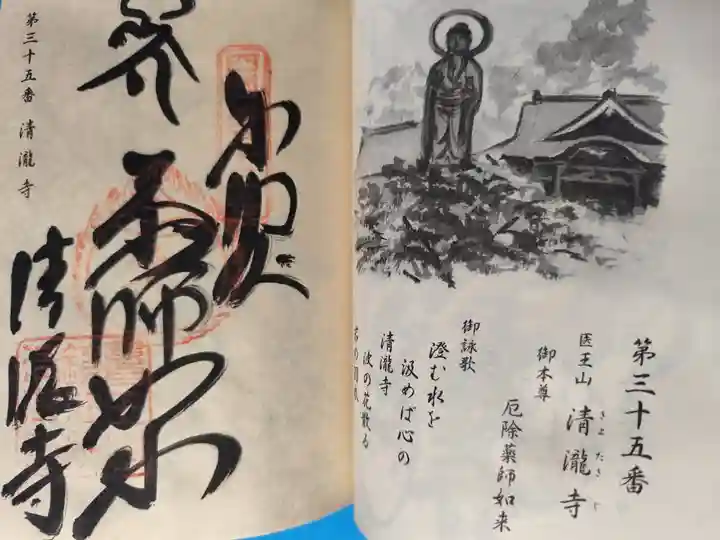 第三十五番
医王山 清瀧寺
きよたきじ
御本尊
厄除薬師如来
御詠歌
澄む水を
汲めば心の
清瀧寺
波の花散る
岩の羽衣
第三十五番 清瀧寺
奉賀
薬師如来
清滝寺